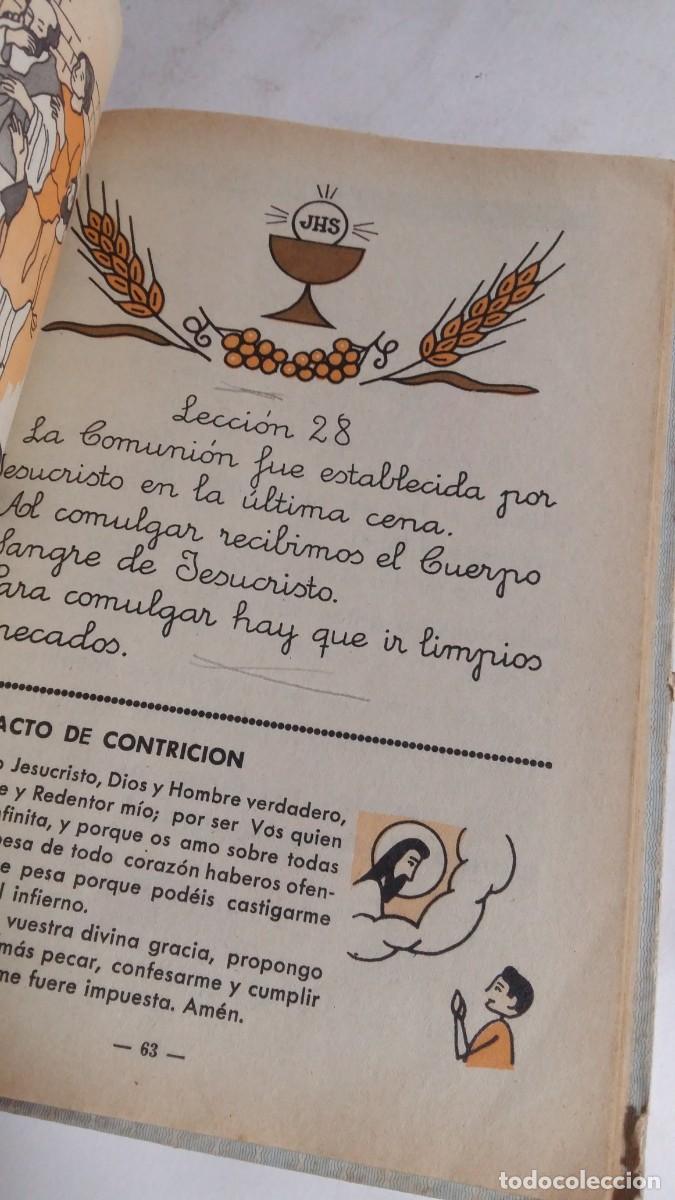 JHS
Lección 28
La Comunión fue establecida por
Jesucristo en la última cena.
Al comulgar recibimos el Cuerpo
Sangre de Jesucristo.
Para comulgar hay que ir limpios
pecados.
ACTO DE CONTRICION
Jesucristo, Dios y Hombre verdadero,
y Redentor mío; por ser Vos quien
y porque os amo sobre todas
de todo corazón haberos ofen-
pesa porque podéis castigarme
infierno.
vuestra divina gracia, propongo
más pecar, confesarme y cumplir
me fuere impuesta. Amén.
— 63 —
todocoleccion